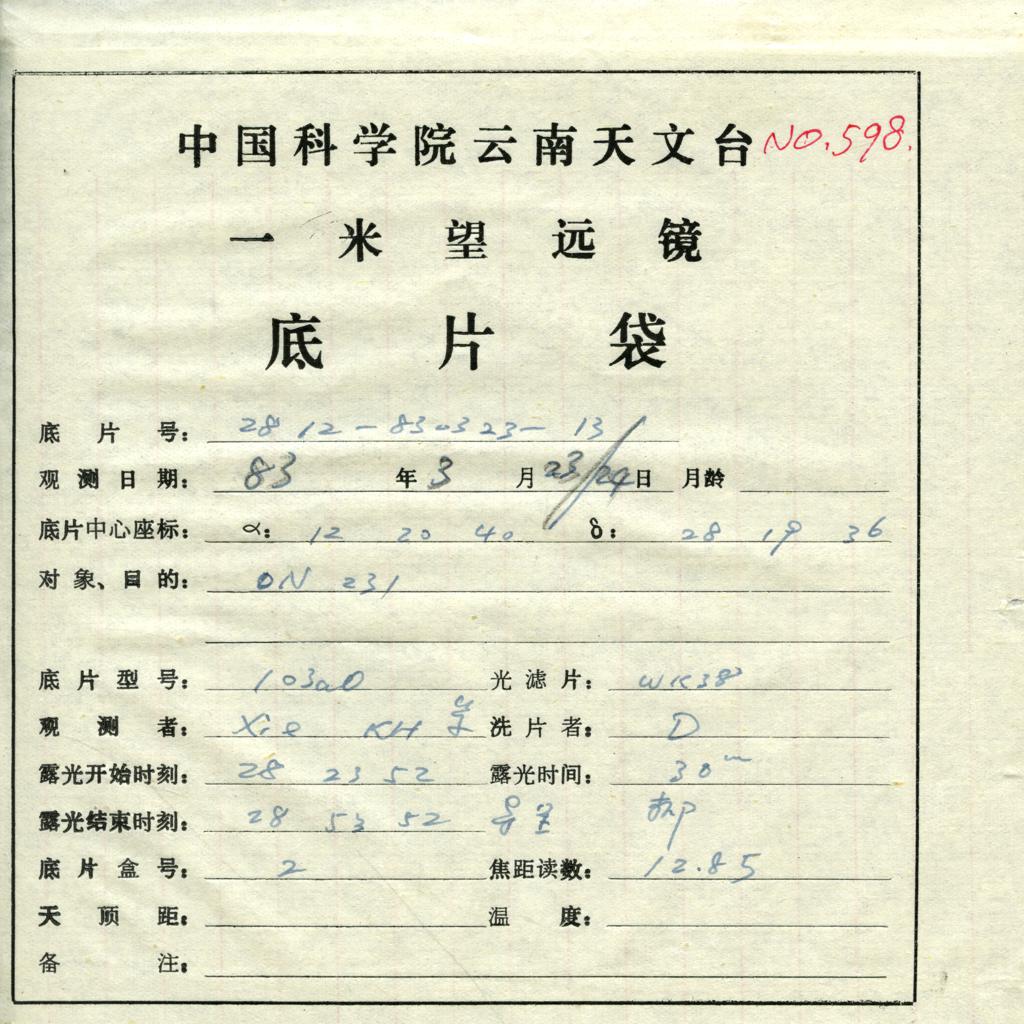 中国科学院云南天文台 NO.598.
一米望远镜
底片袋
底片号: 2812-830323-13
观测日期: 83年3月23/24日 月龄
底片中心座标: α: 12 20 40 δ: 28 19 36
对象、目的: ON 231
底片型号: 103aO 光滤片: WK38
观测者: Xie KH 洗片者: D
露光开始时刻: 28 23 52 露光时间: 30m
露光结束时刻: 28 53 52 导星
底片盒号: 2 焦距读数: 12.85
天顶距: 温度:
备注: